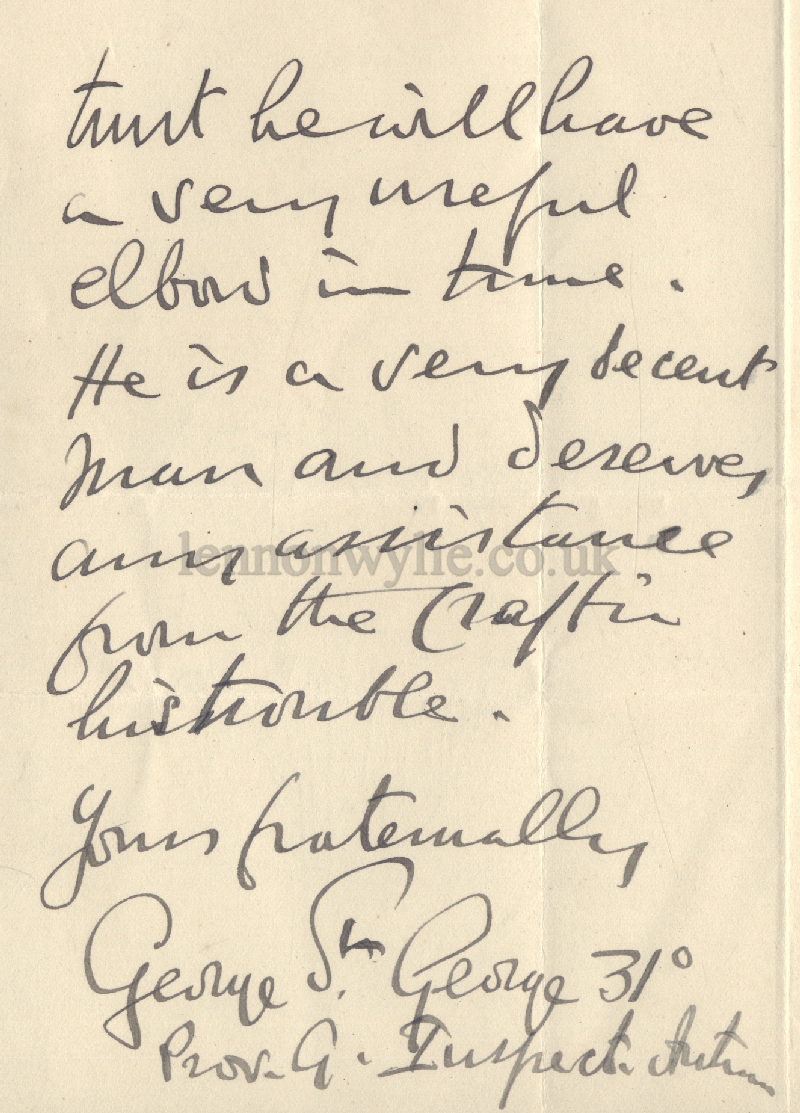 trust he will have
a very useful
elbow in time.
He is a very decent
man and deserves
any assistance
lennonwylie.co.uk
from the Craft in
his trouble.
Yours fraternally
George St. George 31°
Prov. G. Inspect. Antrim